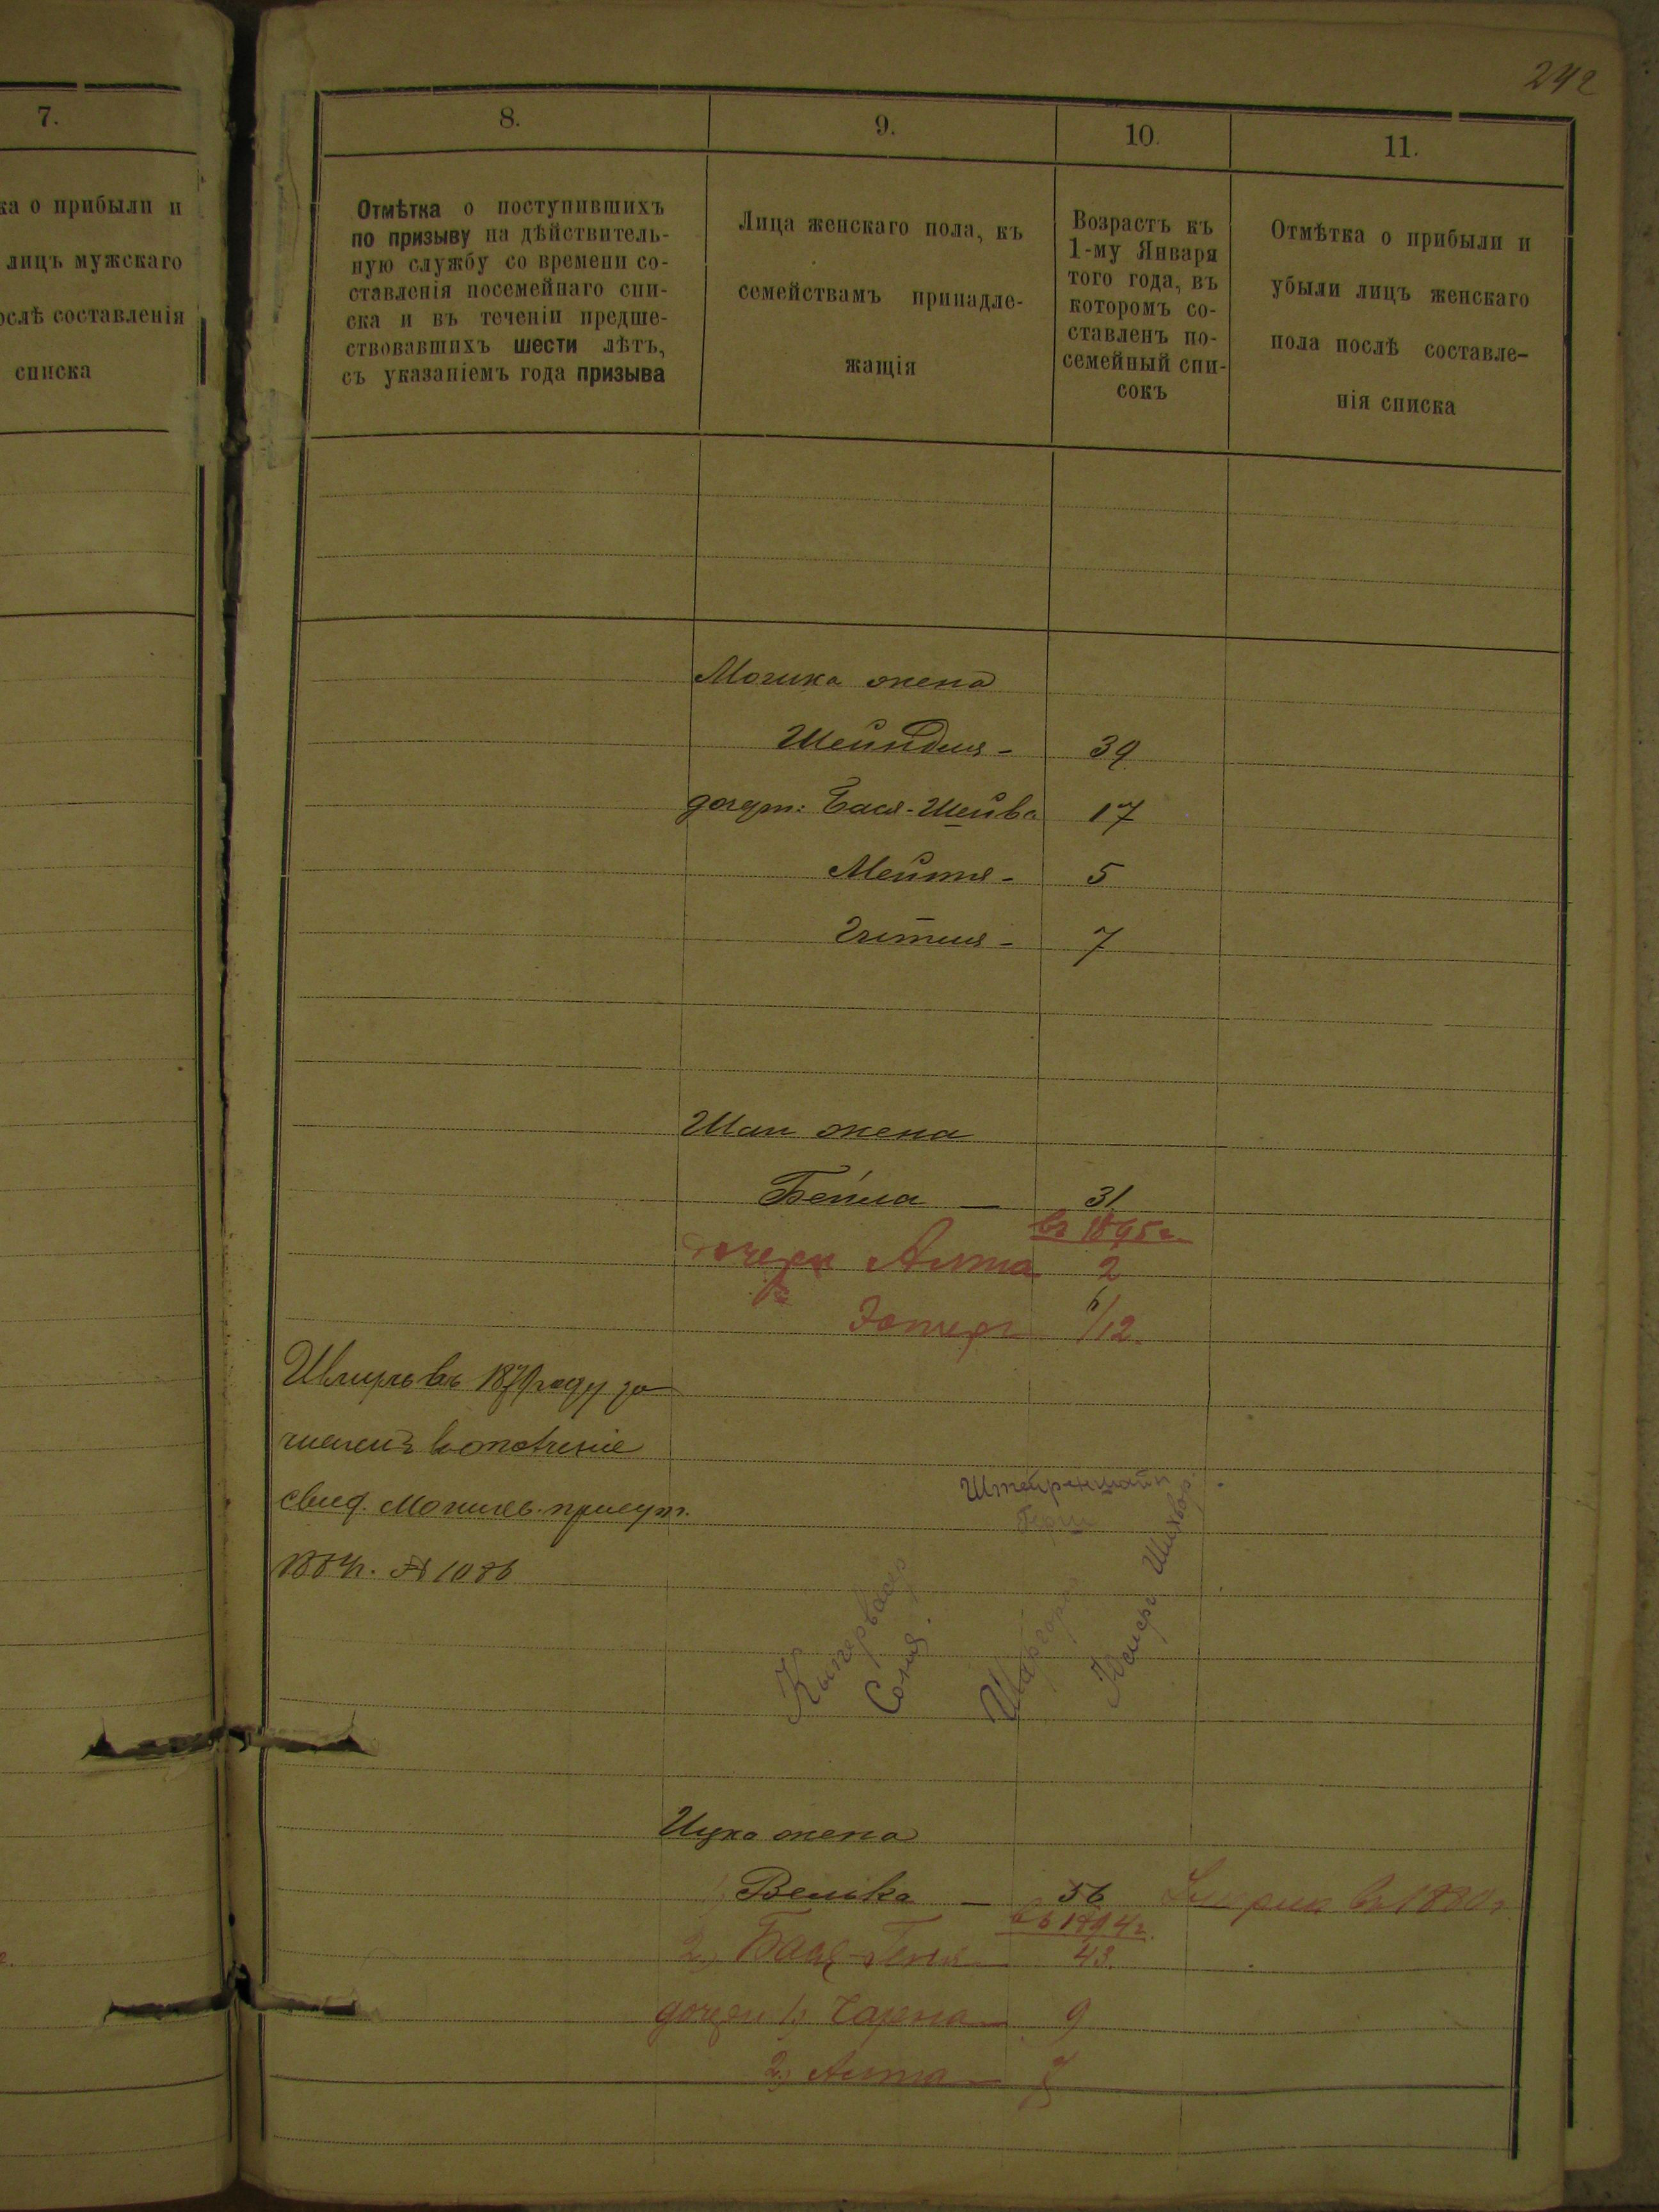 242
7.
ка о прибыли и
лицъ мужскаго
ослѣ составленія
списка
8.
9.
10.
11.
Отмѣтка о поступившихъ
по призыву на дѣйствитель-
ную службу со времени со-
ставленія посемейнаго спи-
ска и въ теченіи предше-
ствовавшихъ шести лѣтъ,
съ указаніемъ года призыва
Лица женскаго пола, къ
семействамъ принадле-
жащія
Возрастъ къ
1-му Января
того года, въ
которомъ со-
ставленъ по-
семейный спи-
сокъ
Отмѣтка о прибыли и
убыли лицъ женскаго
пола послѣ составле-
нія списка
Мошка жена
Шейндля - 39
дочери: Бася-Шейва 17
Мейтя - 5
Гитля - 7
жена
Бейла — 31
въ 1895 г.
дочери Алта 2
Эстеръ /12
въ году за
численъ в ополченіе
свид. Могилев. присут.
№ 1086
Штейреншайн
Сонид
Шаргород
Ицко жена
1) Велька — 56 въ 1880 г
въ 1894 г.
2) Бася-Геня 43.
дочери 1) Сарра 9
2) Алта